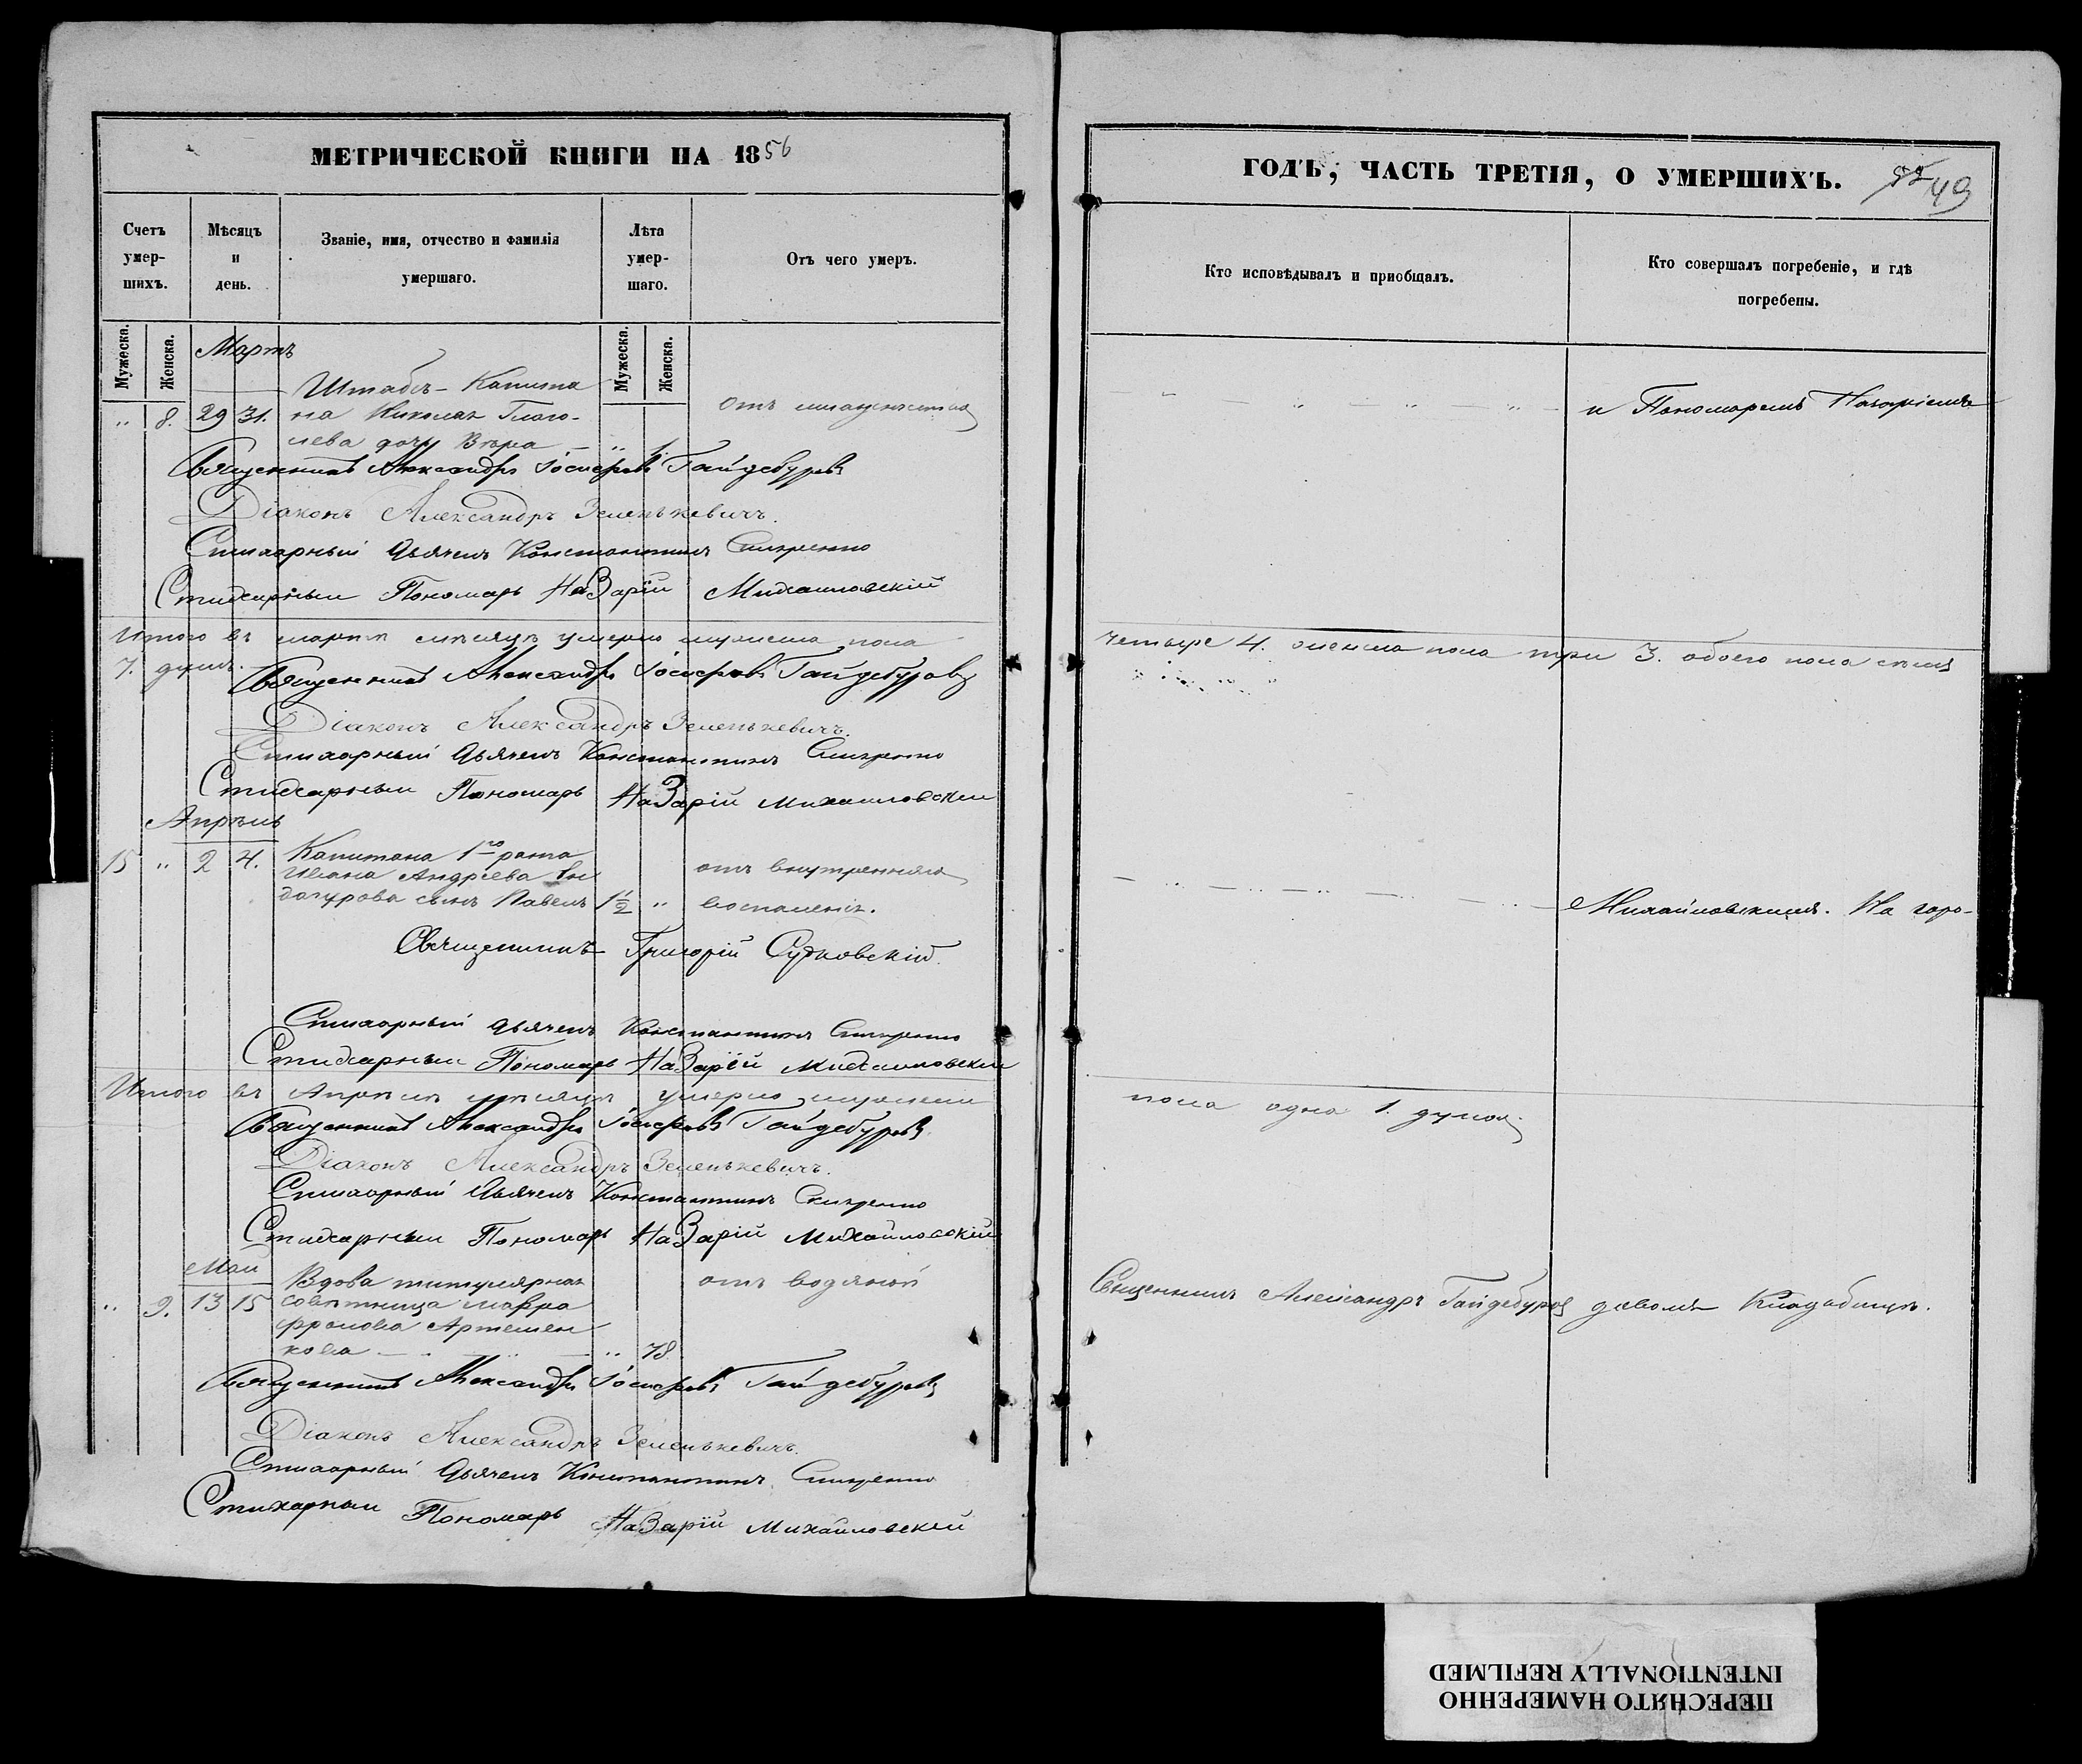 МЕТРИЧЕСКОЙ КНИГИ НА 1856
Счетъ умер-шихъ.
Мѣсяцъ и день.
Званіе, имя, отчество и фамилія умершаго.
Лѣта умер-шаго.
Отъ чего умеръ.
Мужеска.
Женска.
Мужеска.
Женска.
Мартъ
Штабсъ-Капита
" 8. 29 31. на Николая Глаго-
лева дочь Вѣра
отъ младенчества
Священникъ Александръ Гайдебуровъ
Діаконъ Александръ Зеленькевичъ.
Стихарный Дьячекъ Константинъ
Стихарный Пономарь Назарій Михайловскій
Итого въ мартѣ мѣсяцѣ умерло мужеска пола
7. душъ.
Священникъ Александръ Гайдебуровъ
Діаконъ Александръ Зеленькевичъ.
Стихарный Дьячекъ Константинъ
Стихарный Пономарь Назарій Михайловскій
Апрѣль
15 " 2 4. Капитана 1го ранга
Ивана Андреева
сынъ Павелъ 1½ "
отъ внутренняго
воспаленія.
Священникъ Григорій Судковскій.
Стихарный Дьячекъ Константинъ
Стихарный Пономарь Назарій Михайловскій
Итого въ Апрѣлѣ мѣсяцѣ умерло мужеска
Священникъ Александръ Гайдебуровъ
Діаконъ Александръ Зеленькевичъ.
Стихарный Дьячекъ Константинъ
Стихарный Пономарь Назарій Михайловскій
Май
" 9. 13 15 Вдова титулярная
совѣтница Мавра
Фролова Артемен
кова " 78
отъ водяной
Священникъ Александръ Гайдебуровъ
Діаконъ Александръ Зеленькевичъ.
Стихарный Дьячекъ Константинъ
Стихарный Пономарь Назарій Михайловскій
ГОДЪ, ЧАСТЬ ТРЕТІЯ, О УМЕРШИХЪ.
49
Кто исповѣдывалъ и пріобщалъ.
Кто совершалъ погребеніе, и гдѣ погребены.
и Пономаремъ Назаріемъ
четыре 4. женска пола три 3. обоего пола семь
Михайловскимъ. На горо-
пола одна 1. душа.
Священникъ Александръ Гайдебуровъ
довомъ Кладбищѣ.
ПЕРЕСНЯТО НАМЕРЕННО
INTENTIONALLY REFILMED